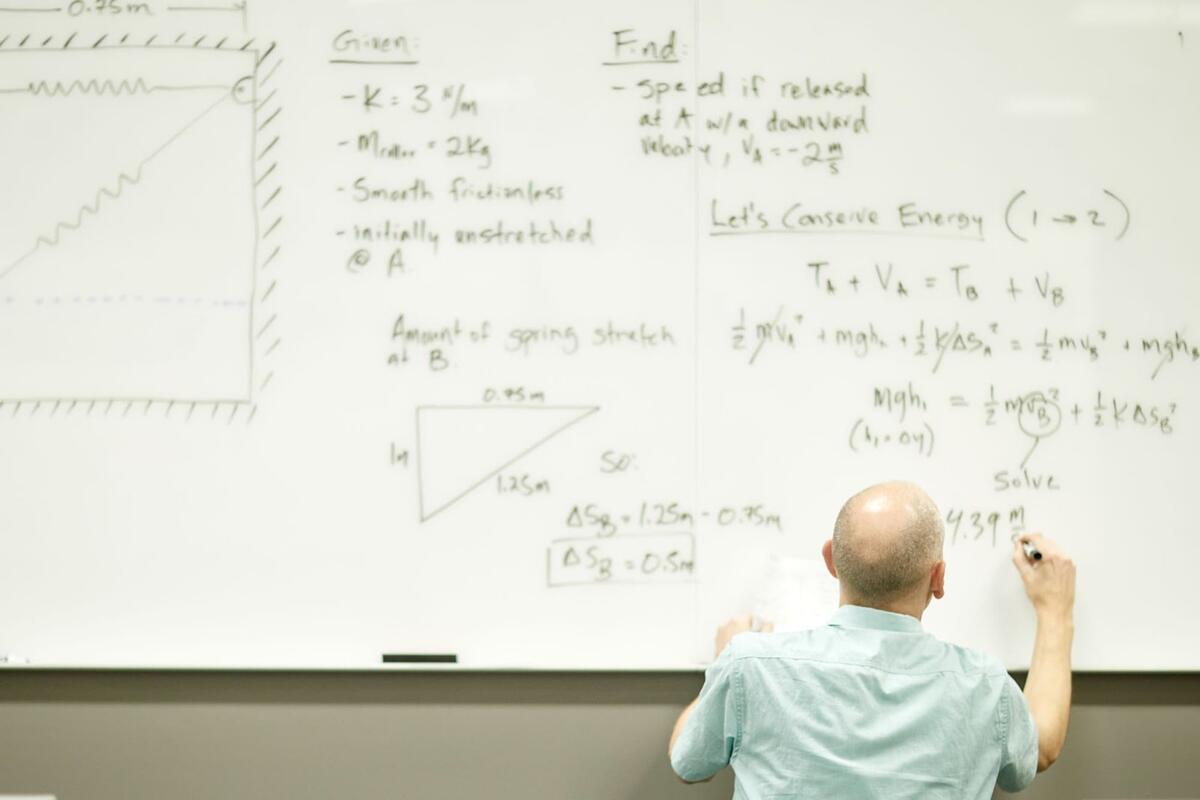 0.75m
Given:
- K = 3 N/m
- Mcollar = 2Kg
- Smooth frictionless
- initially unstretched
@ A.
Find:
- Speed if released
at A w/a downward
velocity, VA = -2 m/s
Let's Conserve Energy (1 → 2)
TA + VA = TB + VB
½ mvA² + mgh, + ½ KΔSA² = ½ mvB² + mghB
mgh₁ = ½ mvB² + ½ KΔSB²
(h₁ = Δy)
Solve
4.39 m
Amount of spring stretch
at B.
0.75m
1m
1.25m
So:
ΔSB = 1.25m - 0.75m
ΔSB = 0.5m